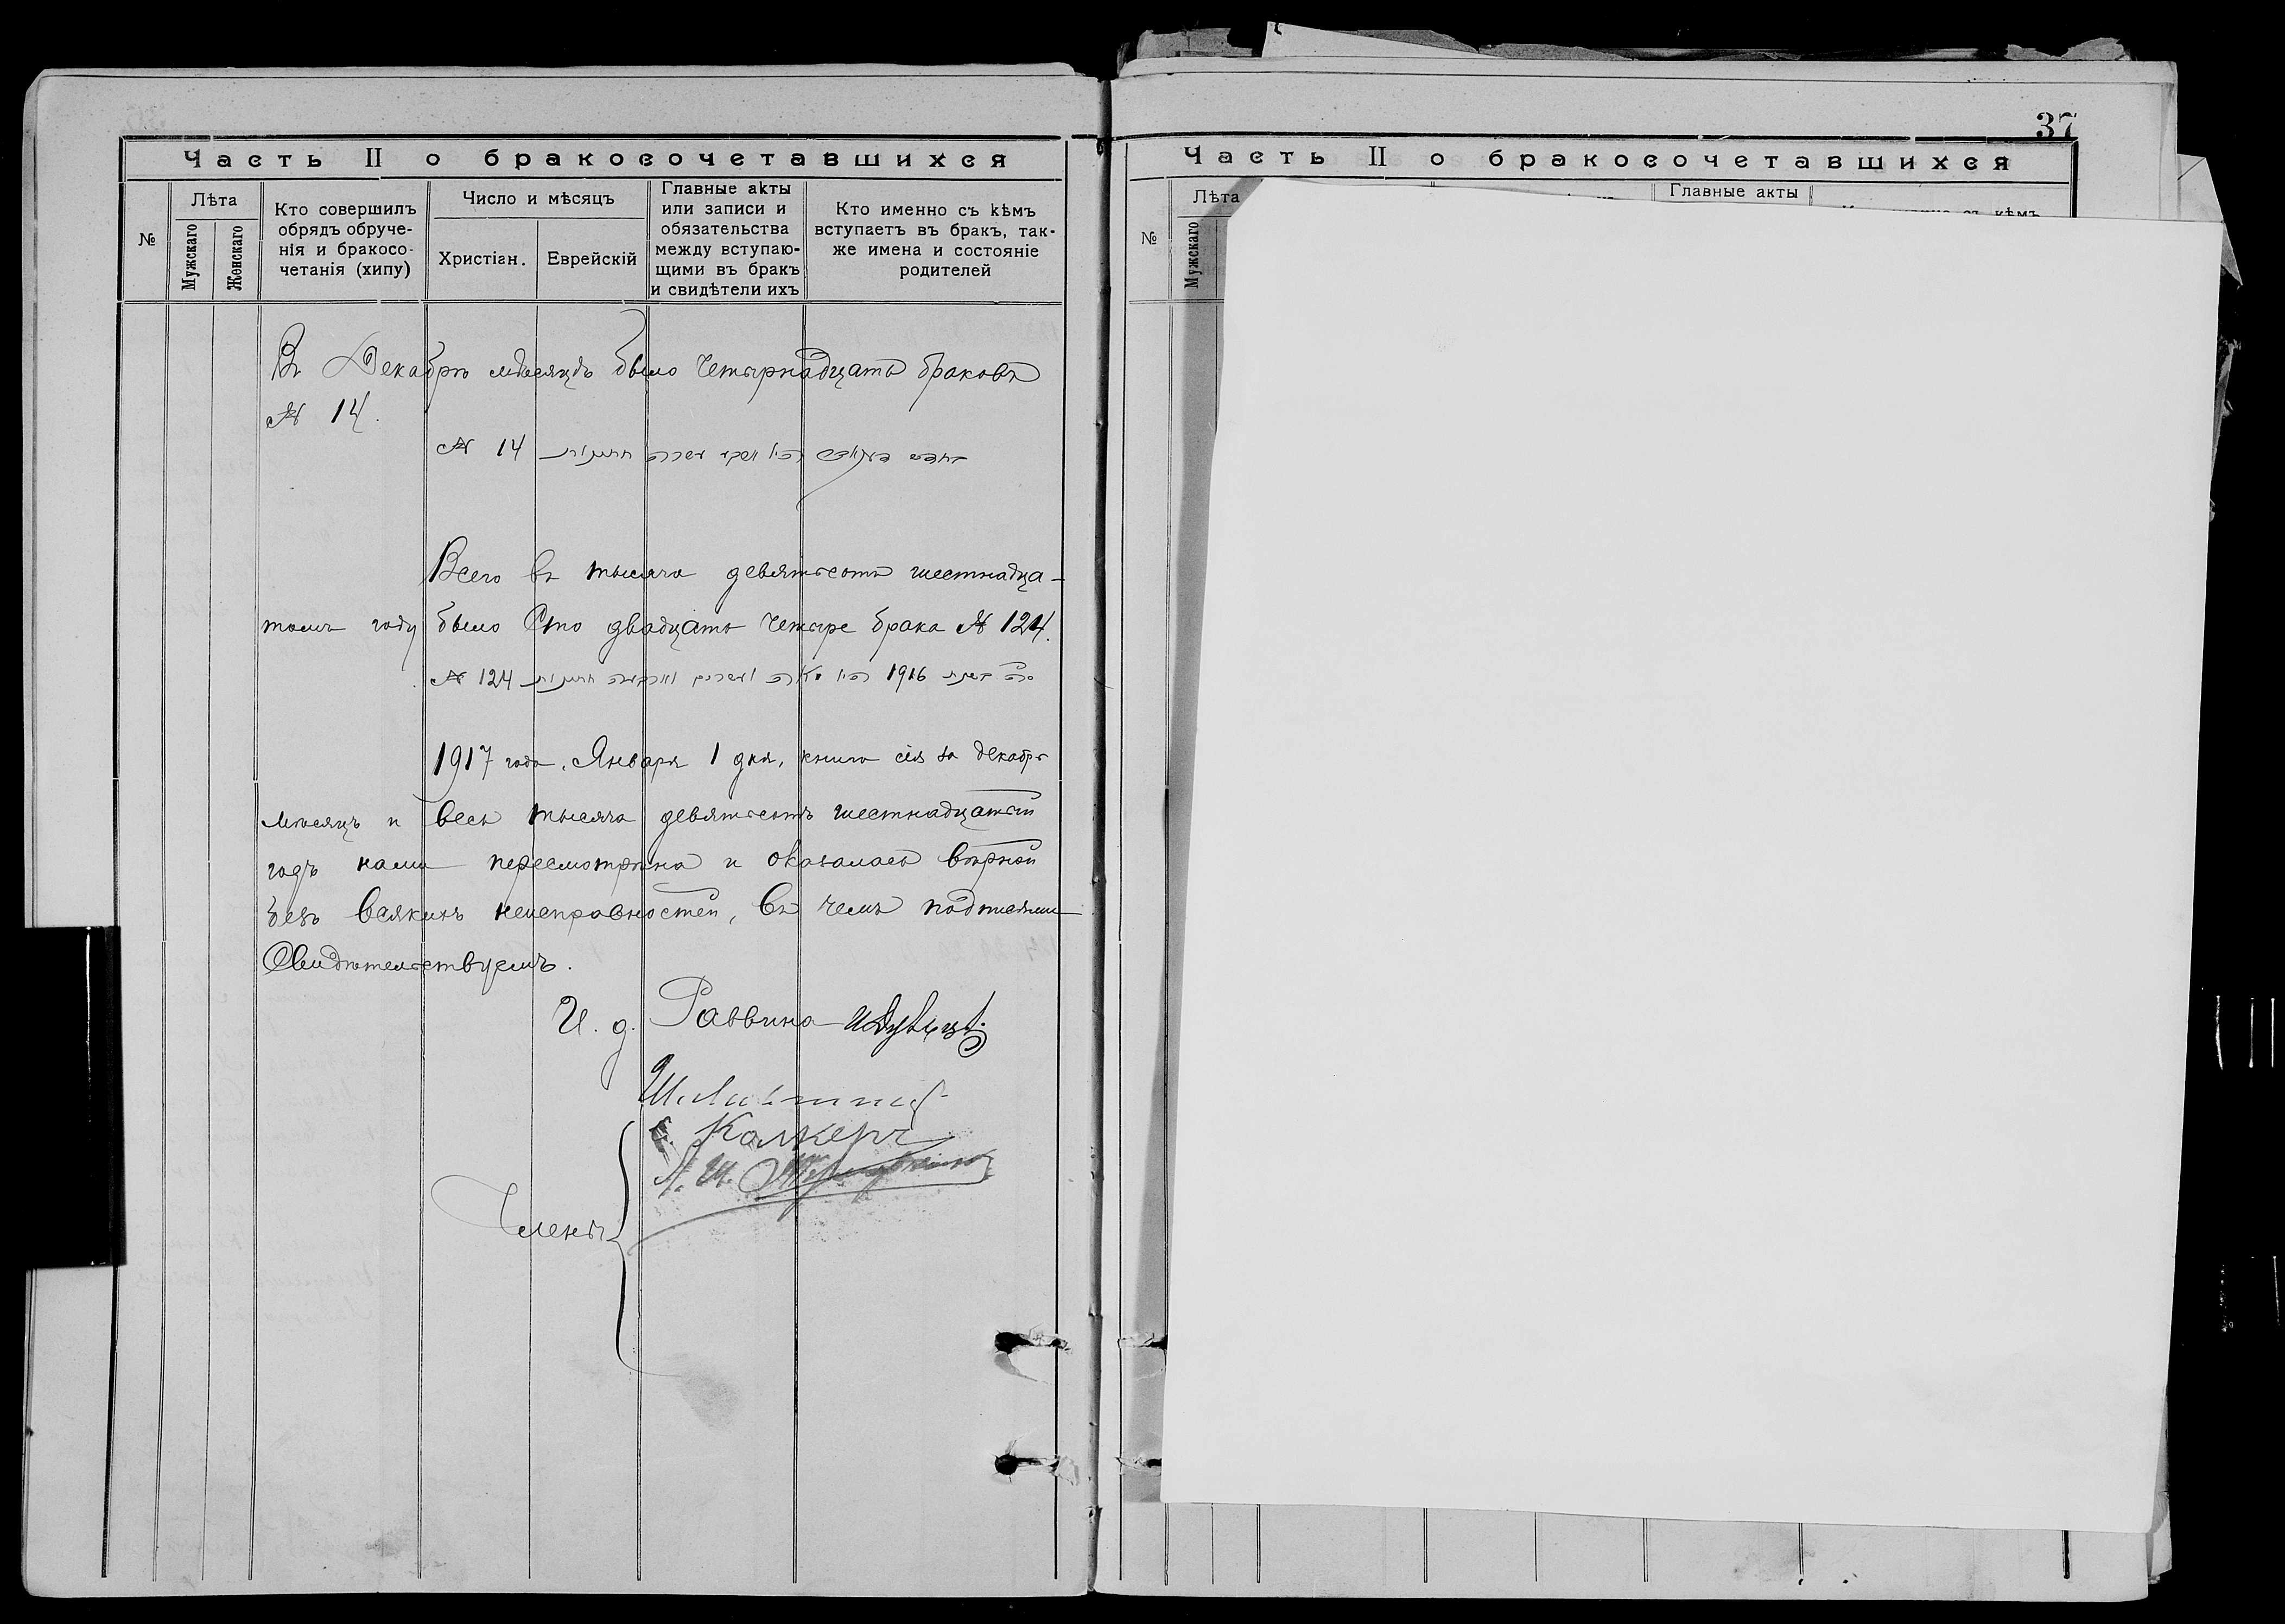 Часть II о бракосочетавшихся
№
Лѣта
Мужскаго
Женскаго
Кто совершилъ
обрядъ обруче-
нія и бракосо-
четанія (хипу)
Число и мѣсяцъ
Христіан.
Еврейскій
Главные акты
или записи и
обязательства
между вступаю-
щими въ бракъ
и свидѣтели ихъ
Кто именно съ кѣмъ
вступаетъ въ бракъ, так-
же имена и состояніе
родителей
Въ Декабрѣ мѣсяцѣ было четырнадцать браковъ
№ 14.
№ 14
Всего въ тысяча девятьсотъ шестнадца-
томъ году было Сто двадцать четыре брака № 124.
№ 124 1916
1917 года, Января 1 дня, книга сія за декабрь
мѣсяцъ и весь тысяча девятьсотъ шестнадцатый
годъ нами пересмотрѣна и оказалась вѣрной
безъ всякихъ неисправностей, въ чемъ подписями
Свидѣтельствуемъ.
И. д. Раввина
Калкеръ
Члены
37
Часть II о бракосочетавшихся
№
Лѣта
Мужскаго
Главные акты
съ кѣмъ